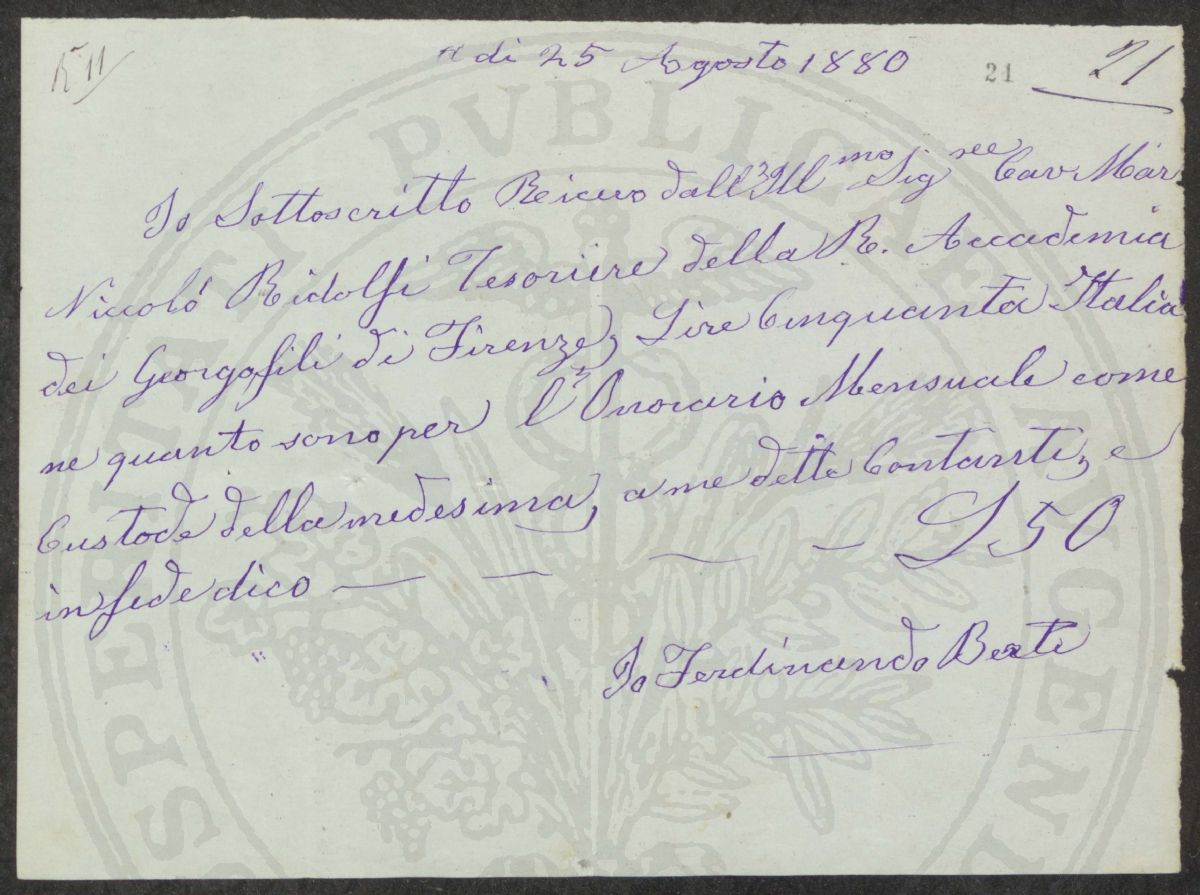 R 11
A di 25 Agosto 1880
21
21
Io Sottoscritto Ricevo dall'Ill^mo Sig^re Cav Mar
Niccoló Ridolfi Tesoriere della R. Accademia
dei Georgofili di Firenze, Lire Cinquanta Italia
ne quanto sono per l'Onorario Mensuale come
Custode della medesima, a me dette Contanti, e
in fede dico — — — — L 50
Io Ferdinando Berti
PVBLICAE